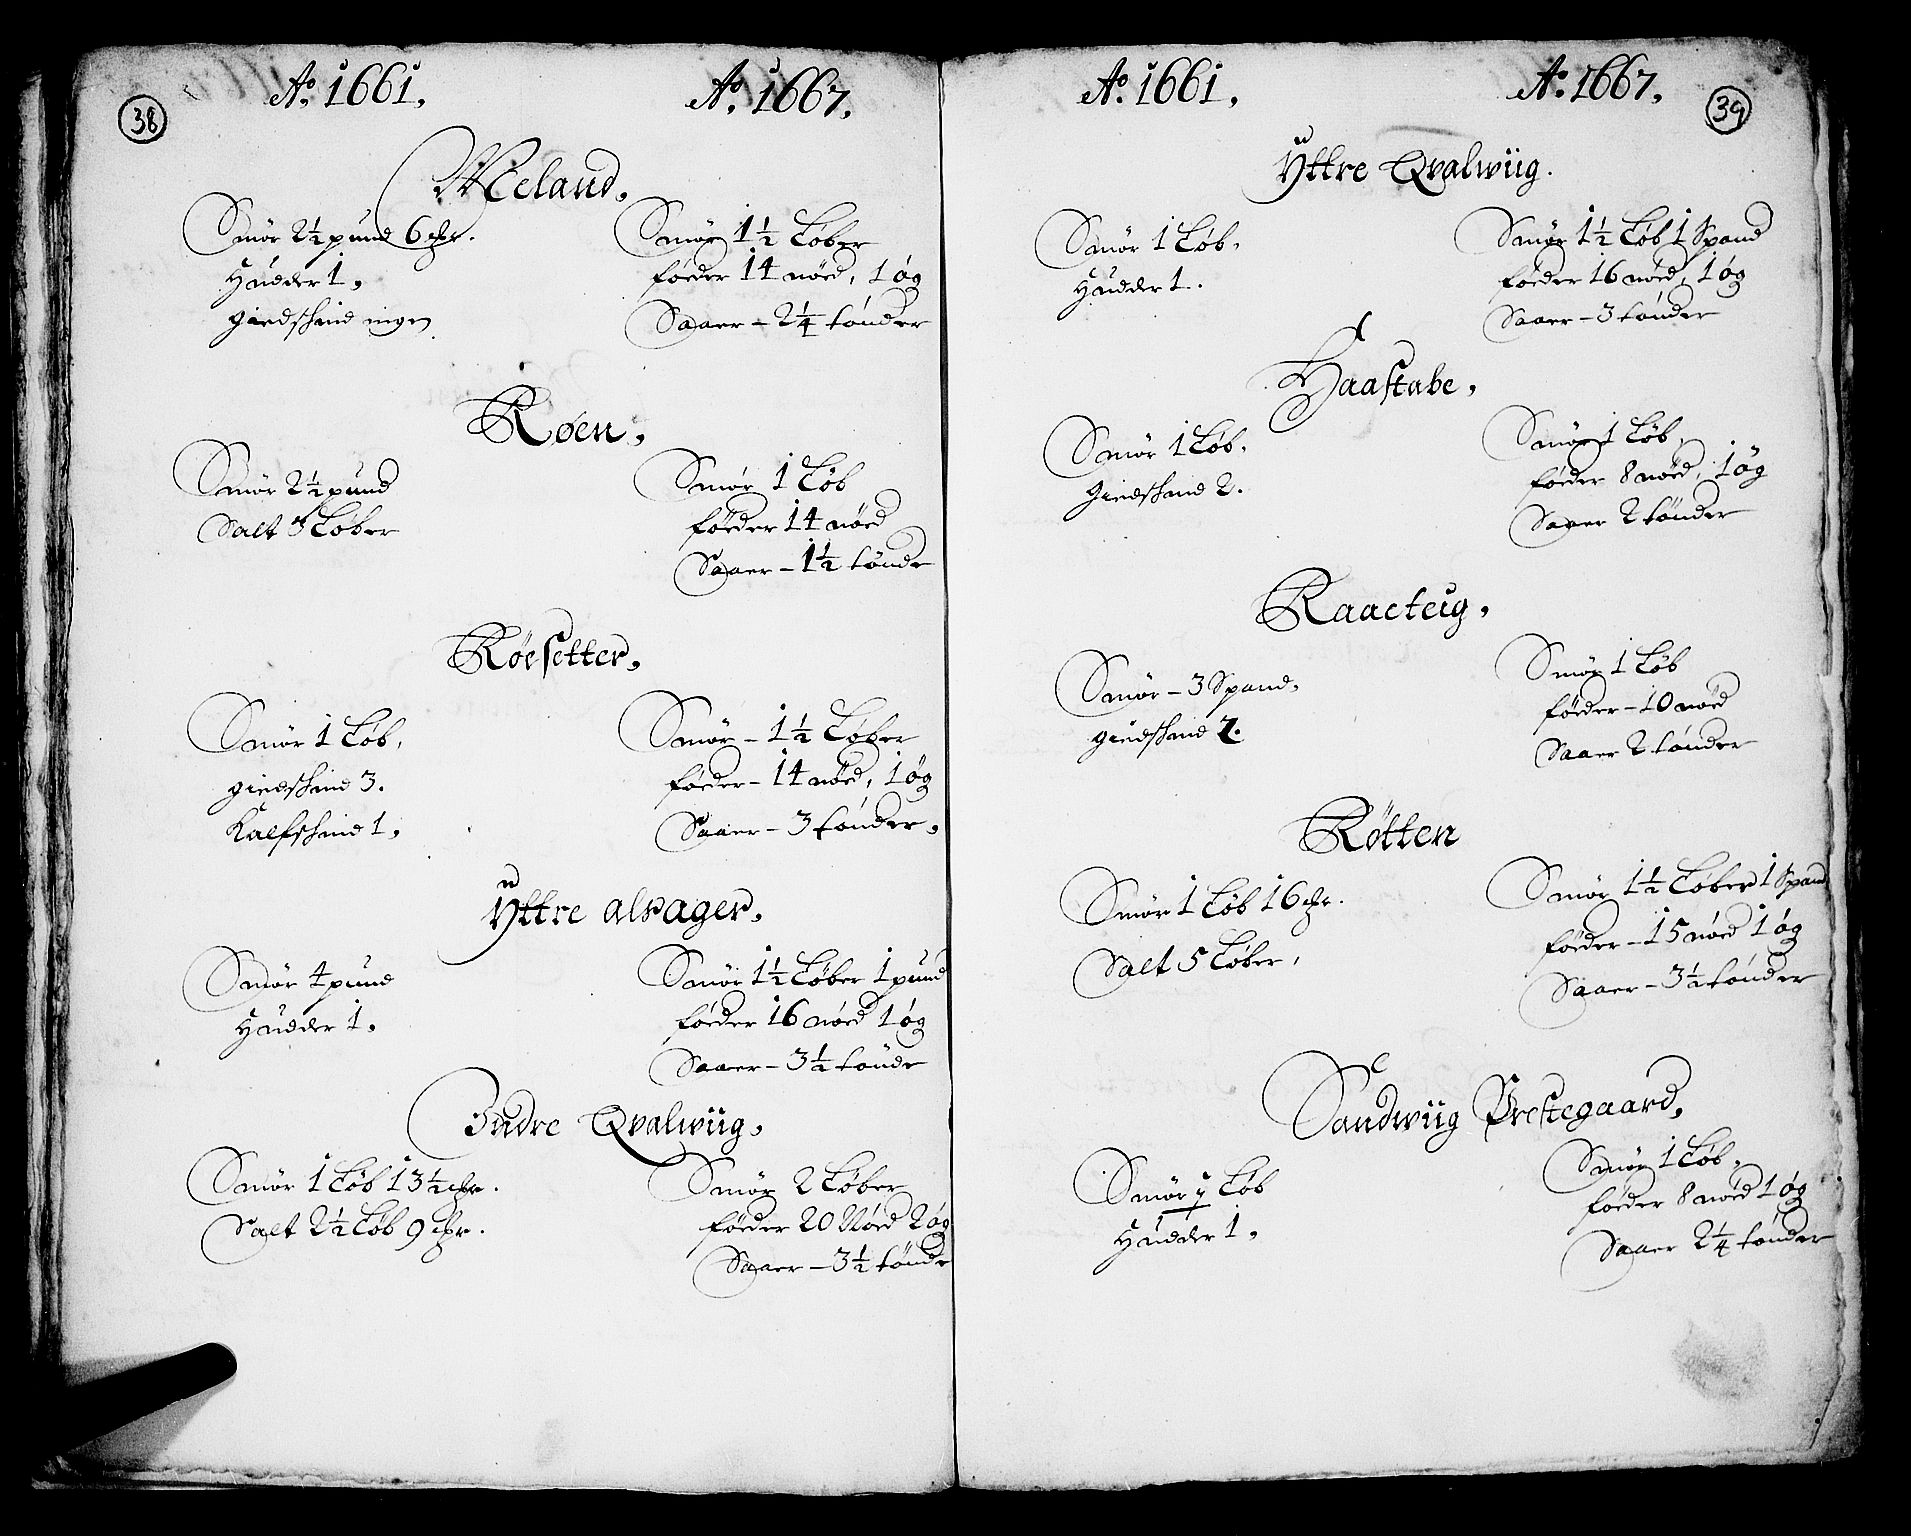 38
Aö. 1661.
Aö. 1667.
Meland.
Smör 2½ pund 6 mr.
Huder 1.
giedshind ingen
Smör 1½ Löber
föeder 14 nöed, 1 ög
Saaer - 2¼ tönder
Röen.
Smör 2½ pund
Salt 3 Löber
Smör 1 Löb
föeder 14 nöed
Saaer - 1½ tönde
Röesetter.
Smör 1 Löb.
giedshind 3.
Kalfshind 1.
Smör - 1½ Löber
föeder - 14 nöed, 1 ög
Saaer - 3 tönder.
Yttre alsager.
Smör 4 pund
Hudder 1.
Smör 1½ Löber 1 pund
föeder 16 nöed 1 ög
Saaer - 3½ tönde
Indre Qvalwiig.
Smör 1 Löb 13½ mr.
Salt 2½ Löb 9 mr.
Smör 2 Löber
föeder 20 Nöed 2 ög
Saaer - 3½ tönde
39
Aö. 1661.
Aö. 1667.
Yttre Qvalwiig.
Smör 1 Löb.
Hudder 1.
Smör 1½ Löb 1 Spand
föeder 16 nöed, 1 ög
Saaer - 3 tönder
Haastabe.
Smör 1 Löb.
giedshind 2.
Smör 1 Löb.
föeder 8 nöed, 1 ög
Saaer 2 tönder
Raaeteig.
Smör - 3 Spand.
giedshind
Smör 1 Löb
föeder - 10 nöed
Saaer 2 tönder
Rötten
Smör 1 Löb 16 mr.
Salt 5 Löber.
Smör 1½ Löber 1 Spand
föeder - 15 nöed 1 ög
Saaer - 3½ tönder
Sandwiig Prestegaard.
Smör Löb
Hudder 1.
Smör 1 Löb.
föeder 8 nöed 1 ög
Saaer 2¼ tönder